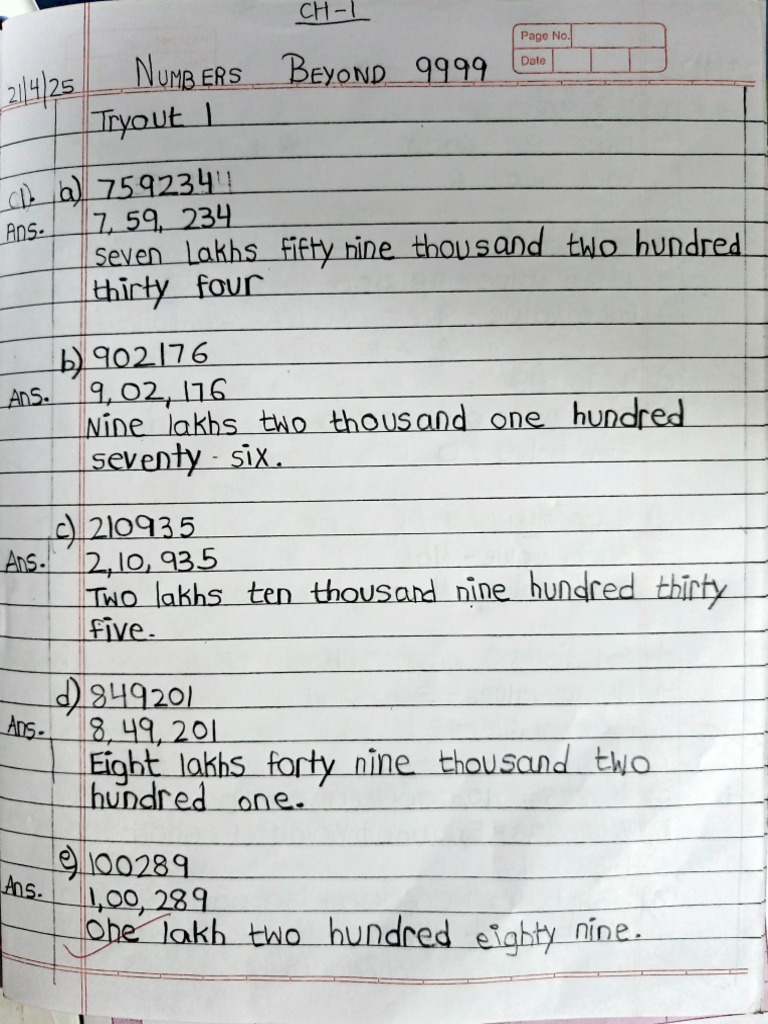 CH-1
Page No.
Date
21/4/25 NUMBERS BEYOND 9999
Tryout 1
Q1. a) 759234
Ans. 7, 59, 234
seven lakhs fifty nine thousand two hundred
thirty four
b) 902176
Ans. 9, 02, 176
Nine lakhs two thousand one hundred
seventy - six.
c) 210935
Ans. 2, 10, 935
Two lakhs ten thousand nine hundred thirty
five.
d) 849201
Ans. 8, 49, 201
Eight lakhs forty nine thousand two
hundred one.
e) 100289
Ans. 1,00, 289
One lakh two hundred eighty nine.